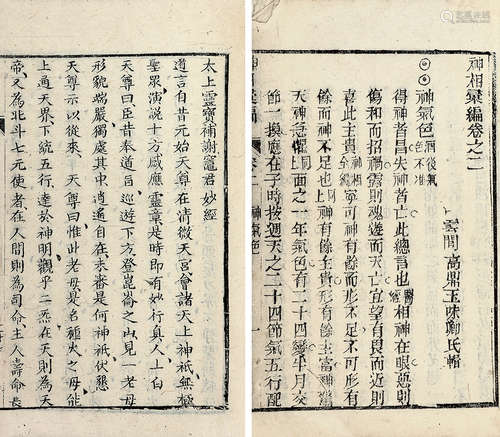 神相彙編卷之二
雲間高鼎玉味卿氏輯
神氣色
得神者昌失神者亡此總言也相神在眼惡則
傷和而招禍露則魂遊而夭亡宜望有畏而近則
喜此主貴神相寧可神有餘而形不足不可形有
餘而神不足也神有餘主貴形有餘主富神濁
夭神急
上面之一年氣色有二十四變半月交
節一換應在子時按週天之二十四節氣五行配
太上靈寶補謝竈君妙經
道言自昔元始天尊在清微天宮會諸天上神祇無極
聖眾演說十方感應靈章是時即有妙行真人上白
天尊曰臣昔奉道旨巡遊下方登崑崙之山見一老母
形貌端嚴獨處其中逍遙自在未審是何神祇伏惡
天尊示以從來 天尊曰惟此老母是名種火之母能
上通天界下統五行達於神明觀乎二炁在天則為天
帝又為北斗七元使者在人間則為司命主人壽命長